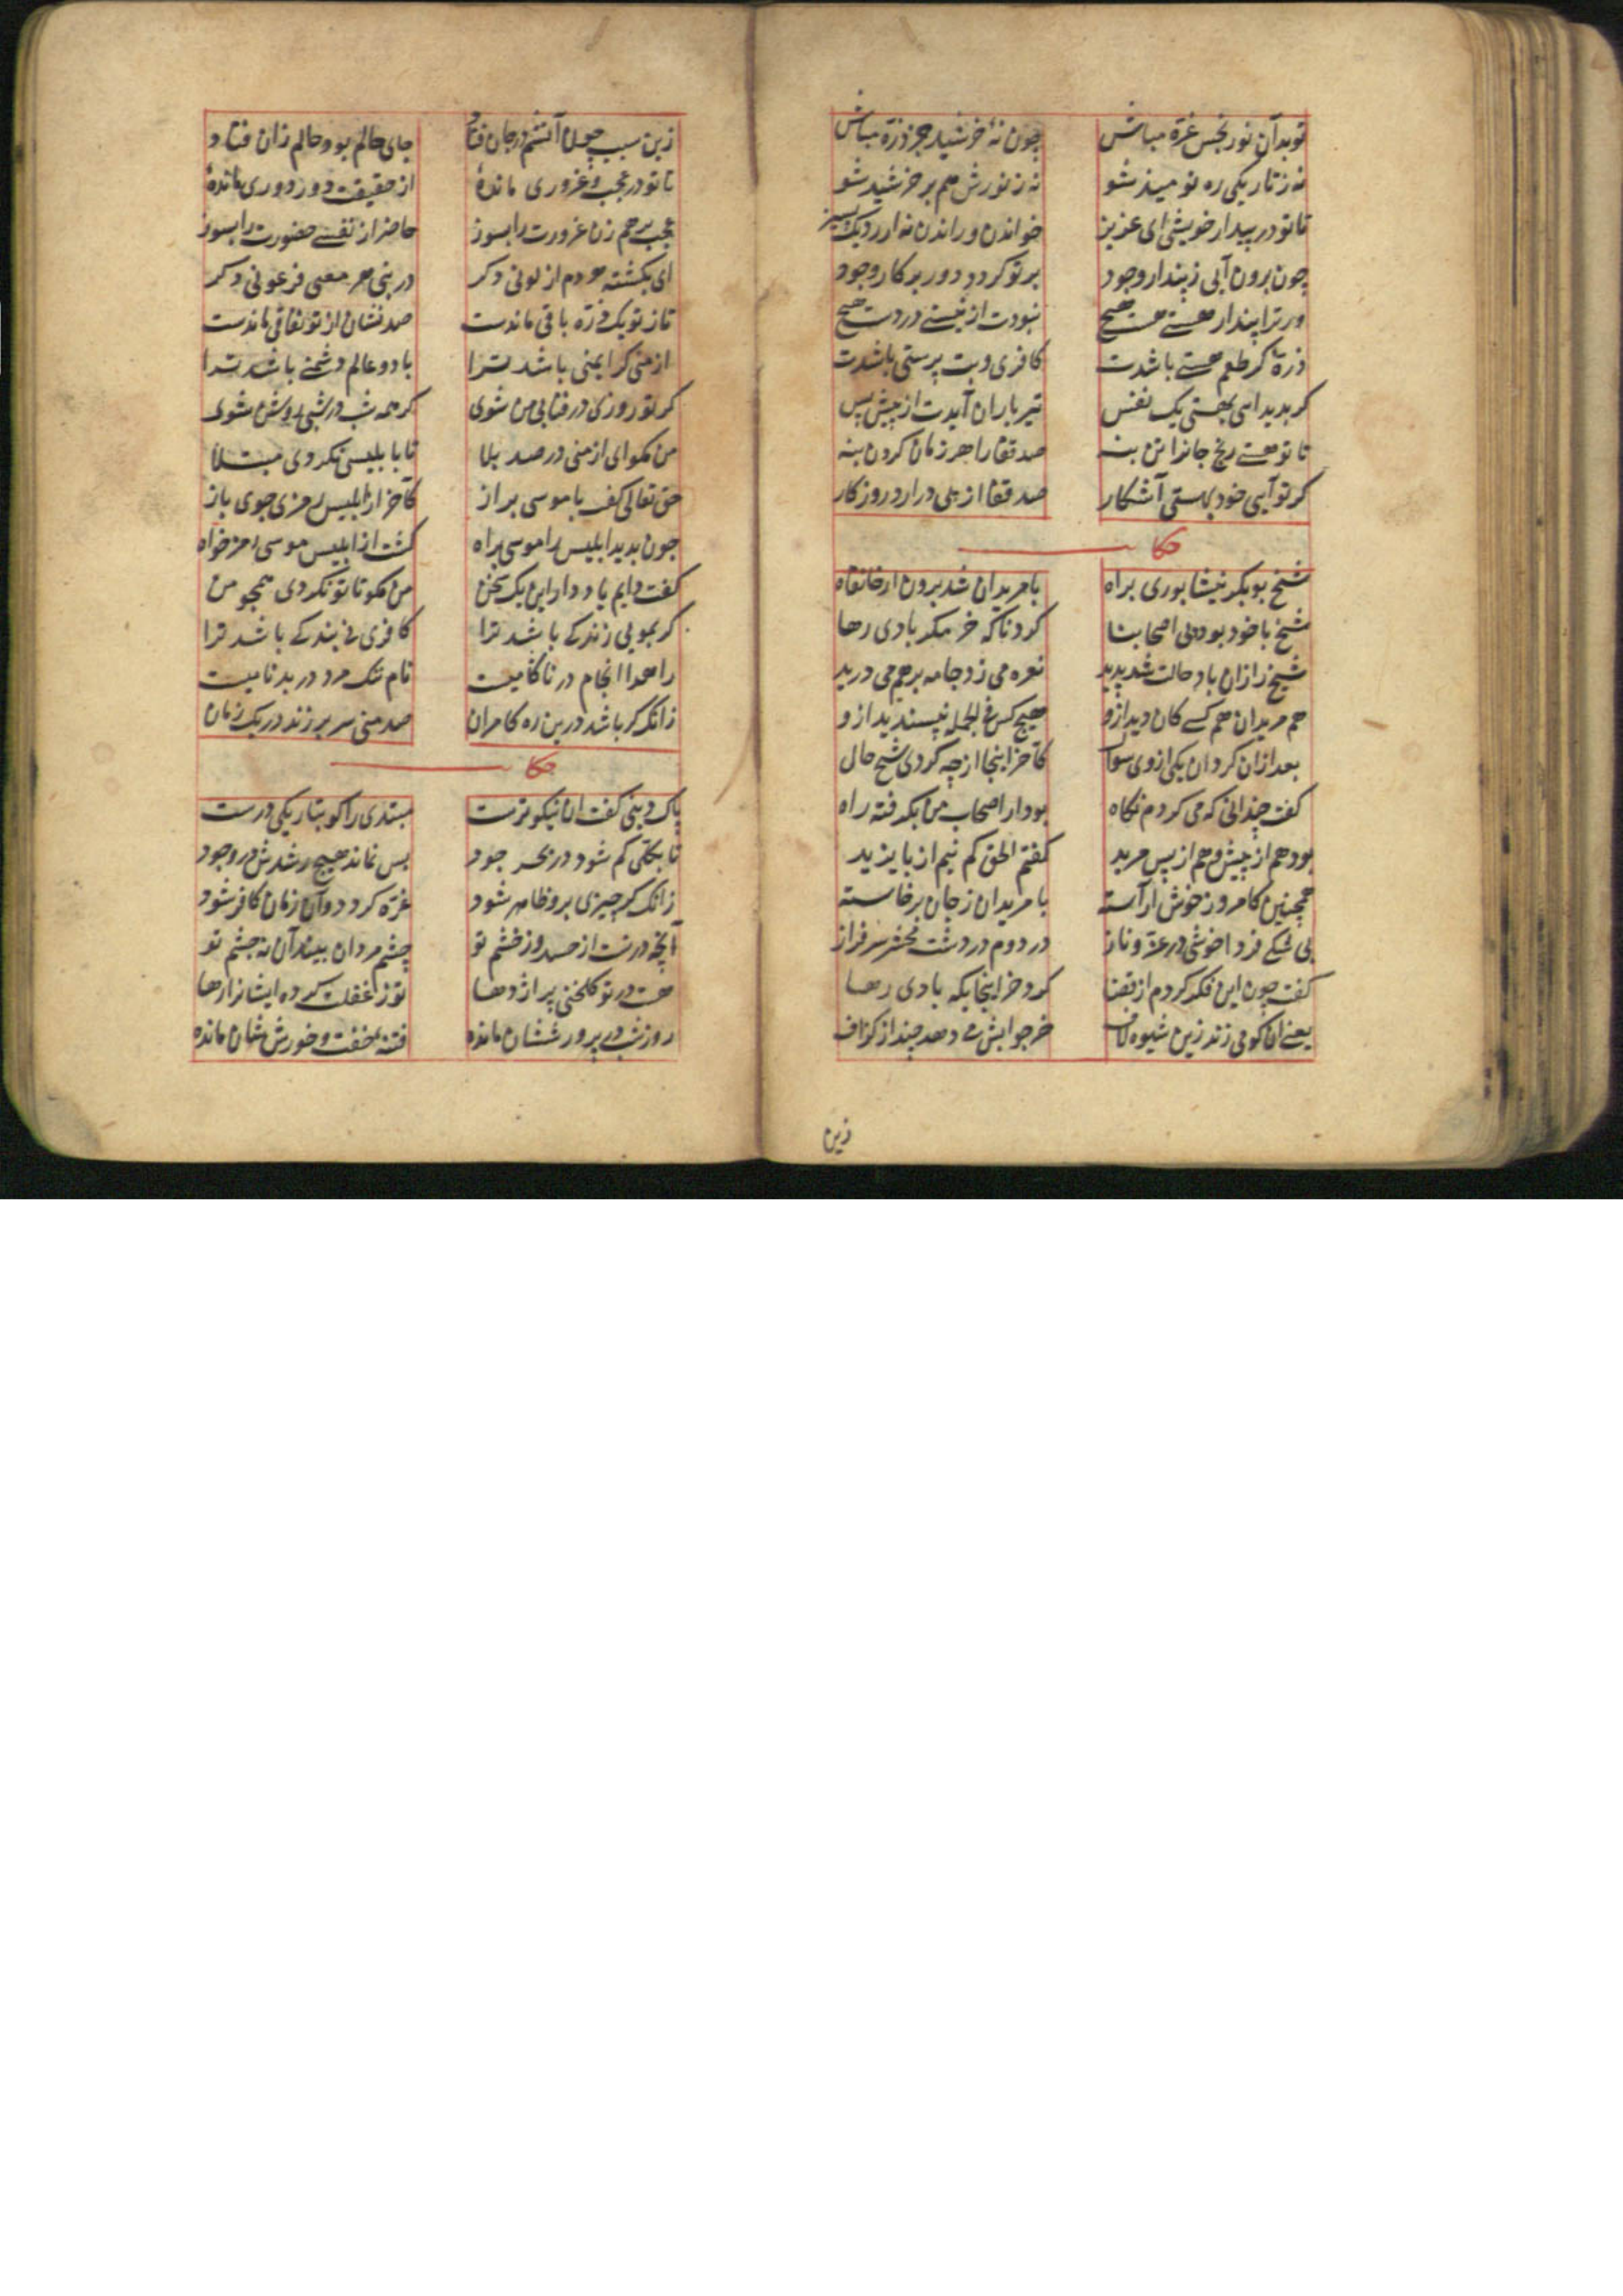 تو بدان نور نجس غره مباش چون نهٔ خرشید جز ذره مباش
نه ز تاریکی ره نومید شو نه ز نورش هم بر خرشید شو
تا تو در پندار خویشی ای عزیز خواندن و راندن نه ارزد یک پشیز
چون برون آیی ز پندار وجود بر تو کردد دور پرکار وجود
ور ترا پندار هستی هست هیچ نبودت از نیستی در دست هیچ
ذرهٔ کر طعم هستی باشدت کافری و بت پرستی باشدت
کر بدید آیی بهستی یک نفس تیر باران آیدت از پیش پس
تا تو هستی رنج جانرا تن بنه صد قفا را هر زمان کردن بنه
کر تو آیی خود بهستی آشکار صد قفا از پی درارد روزکار
حکا
شیخ بوبکر نیشابوری براه با مریدان شد برون از خانقاه
شیخ با خود بود بی اصحابنا کرد ناکه خر مکر بادی رها
شیخ را زان باد حالت شد پدید نعره می زد جامه بر هم می درید
هم مریدان هم کسی کان دید ازو هیچ کس فی الجمله نپسندید ازو
بعد ازان کرد ان یکی از وی سوال کاخر اینجا از چه کردی شیخ حال
کفت چندانی که می کردم نکاه بود از اصحاب من بکرفته راه
بود هم از پیش و هم از پس مرید کفتم الحق کم نیم از بایزید
همچنین کامروز خوش اراسته با مریدان ز جان برخاسته
بی شکی فردا خوشی در عز و ناز در روم در دشت محشر سرفراز
کفت چون این فکر کردم از قضا کرد خر اینجایکه بادی رها
یعنی انکو می زند زین شیوه لاف خر جوابش می دهد چند از کزاف
زین
زین سبب چون آتشم در جان فتاد جای حالم بود و حالم زان فتاد
تا تو در عجب و غروری ماندهٔ از حقیقت دور دوری ماندهٔ
عجب بر هم زن غرورت را بسوز حاضر از نفسی حضورت را بسوز
ای بکشته هر دم از لونی دکر در بن هر موی فرعونی دکر
تا ز تو یک ذره باقی ماندست صد نشان از تو نفاقی ماندست
از منی کر ایمنی باشد ترا با دو عالم دشمنی باشد ترا
کر تو روزی در فنایی من شوی کر همه شب در شبی روشن شوی
من مکو ای از منی در صد بلا تا بابلیسی نکردی مبتلا
حق تعالی کفت با موسی براز کاخر از ابلیس رمزی جوی باز
چون بدید ابلیس را موسی براه کشت از ابلیس موسی رمز خواه
کفت دایم یاد دار این یک سخن من مکو تا تو نکردی همچو من
کر بمویی زندکی باشد ترا کافری نی بندکی باشد ترا
راه را انجام در ناکامیست نام نیک مرد در بدنامیست
زانک کر باشد درین ره کامران صد منی سر بر زند در یک زمان
حکا
پاک دینی کفت ان نیکوترست مبتدی را کو بتاریکی درست
تا بکلی کم شود در بحر جود پس نماند هیچ رشدش در وجود
زانک کر چیزی برو ظاهر شود غره کردد وان زمان کافر شود
آنچه در تست از حسد و ز خشم تو چشم مردان بیند آن نه چشم تو
هست در تو کلخنی پر اژدها تو ز غفلت کرده ایشانرا رها
روز شب در پرورششان مانده فتنهٔ خفت و خورششان مانده